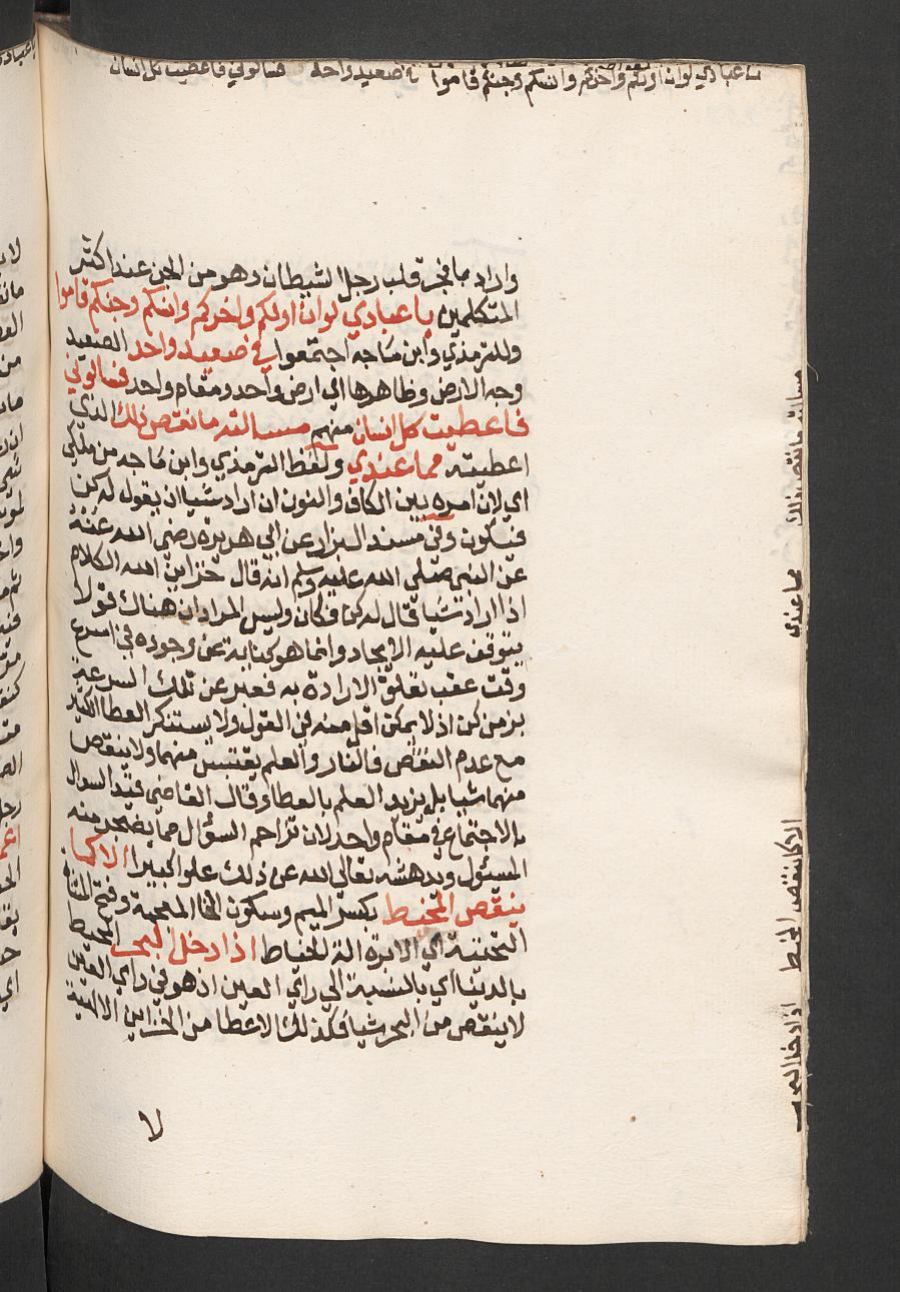 يا عبادي لو ان اولكم واخركم وانسكم وجنكم قاموا في صعيد واحد فسالوني فاعطيت كل انسان
واراد بافجر قلب رجل الشيطان وهو من الجن عند اكثر
المتكلمين يا عبادي لو ان اولكم واخركم وانسكم وجنكم قاموا
وللترمذي وابن ماجه اجتمعوا في صعيد واحد الصعيد
وجه الارض وظاهرها اي ارض واحد ومقام واحد فسالوني
فاعطيت كل انسان منهم مسالته ما نقص ذلك الذي
اعطيته مما عندي ولفظ الترمذي وابن ماجه من ملكي
اي لان امره بين الكاف والنون ان اراد شيا ان يقول له كن
فيكون وفي مسند البزار عن ابي هريرة رضي الله عنه
عن النبي صلي الله عليه وسلم انه قال خزاين الله الكلام
اذا اراد شيا قال له كن فكان وليس المراد ان هناك قولا
يتوقف عليه الايجاد وانما هو كناية عن وجوده في اسرع
وقت عقب تعلق الارادة به فعبر عن تلك السرعة
بزمن كن اذ لا يمكن اقل منه في القول ولا يستنكر العطا الكثير
مع عدم النقص فالنار والعلم يقتبس منهما ولا ينقص
منهما شيا بل يزيد العلم بالعطا وقال القاضي قيد السوال
بالاجتماع في مقام واحد لان تزاحم السؤال مما يضجر منه
المسئول ويدهشه تعالي الله عن ذلك علوا كبيرا الا كما
ينقص المخيط بكسر الميم وسكون الخا المعجمة وفتح المثناة
التحتية اي الابرة الة الخياط اذا دخل البحر المحيط
بالدنيا اي بالنسبة الي راي العين اذ هو في راي العين
لا ينقص من البحر شيا فكذلك الاعطا من الخزاين الالهية
لا
مسالته ما نقص ذلك مما عندي
الا كما ينقص المخيط اذا دخل البحر